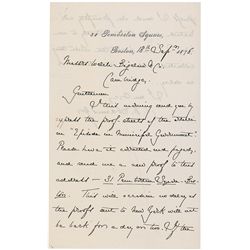 31 Pemberton Square,
Boston, 18th Sept. 1876.
Messrs Welch, Bigelow & Co.
Cambridge,
Gentlemen
I this morning send you by
express the proof sheets of the article
on "Episode in Municipal Government".
Please have it corrected and
and send me a new proof to this
address — 31 Pemberton Square, Bos-
ton. This will occasion no delay as
the proofs sent to New York will not
be back for a day or two. If the